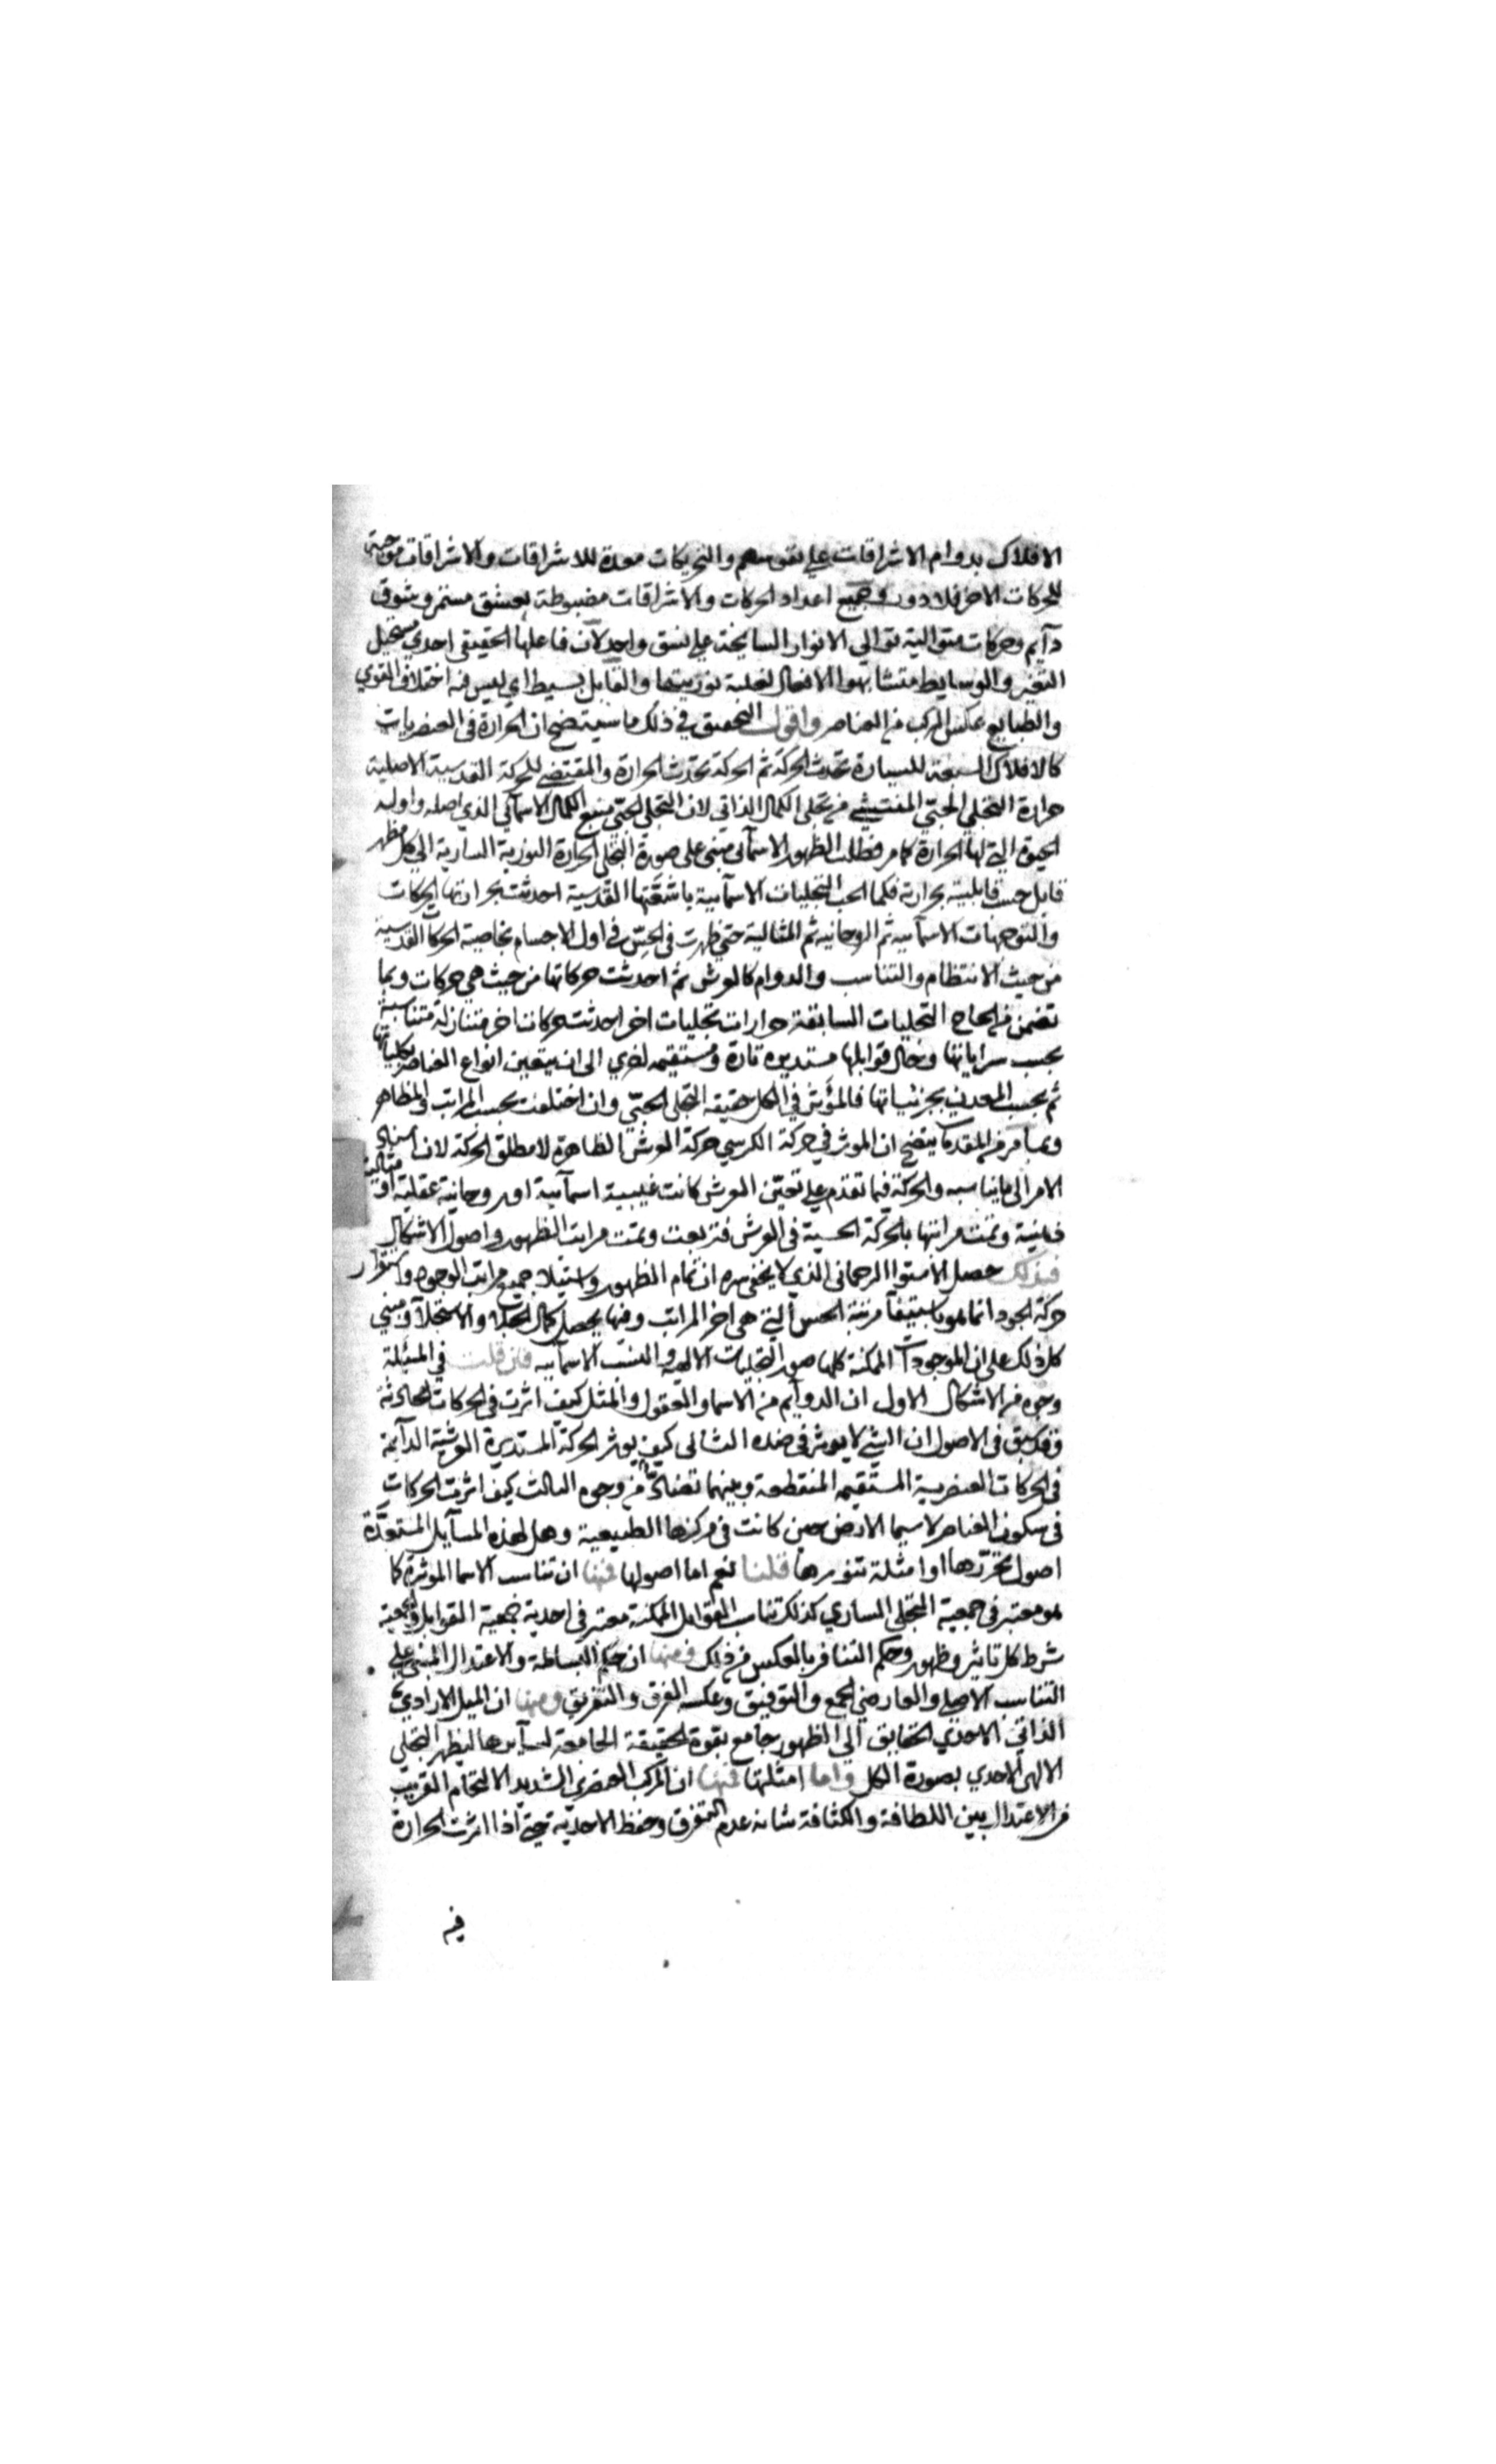 الافلاك بدوام الاشراقات على نفوسهم والتحريكات معدة للاشراقات والاشراقات موجبة
للحركات الاخر فلا دور وجميع اعداد الحركات والاشراقات مضبوطة بعشق مستمر وشوق
دآيم وحركات متوالية توالي الانوار السانحة على نسق واحد لان فاعلها الحقيقي احدي مستحيل
التغير والوسايط متشابهوا الافعال لغلبة نوريتها والقابل بسيط اي ليس فيه اختلاف القوي
والطبايع عكس المركب من العناصر واقول التحقيق في ذلك ما سيتضح ان الحرارة في العنصريات
كالافلاك السبعة للسيارة تحدث الحركة ثم الحركة تحدث الحرارة والمقتضي للحركة القدسية الاصلية
حرارة التجلي الحبي المنتشي من تجلي الكمال الذاتي لان التجلي الحبي منبع الكمال الاسمآئي الذي اصله واوله
الحيوة التي لها الحرارة كما مر فطلب الظهور الاسمآئي مبني على صورة التجلي الحرارة النورية السارية الى كل مظهر
قابل حسب قابليته بحرارته فكما الحب التجليات الاسمآئية باشعتها القدسية احدثت بحرارتها الحركات
والتوجهات الاسمآئية ثم الروحانية ثم المثالية حتى ظهرت في الحس في اول الاجسام بخاصية الحركات القدسية
من حيث الانتظام والتناسب والدوام كالعرش ثم احدثت حركاتها من حيث هي حركات وبما
تضمن من احكام التجليات السابقة حرارات تجليات اخر احدثت حركات اخر متنازلة متناسبة
بحسب سراياتها وحال قوابلها مستديرة تارة ومستقيمة اخري الى ان يتعين انواع العناصر بكلياتها
ثم بحسب المعدن بجزئياتها فالمؤثر في الكل حقيقة التجلي الحبي وان اختلفت بحسب المراتب والمظاهر
وبما مر من المقدمة يتضح ان الموثر في حركة الكرسي حركة العرش الظاهرة لا مطلق الحركة لان اسناد
الامر الى ما يناسبه والحركة فيما تقدم على تعين العرش كانت غيبية اسمآئية او روحانية عقلية او مثالية
فتمت مراتبها بالحركة الحسية في العرش فتربعت وتمت مراتب الظهور واصول الاشكال
فبذلك حصل الاستوا الرحماني الذي لا يخفى سره ان تمام الظهور واستيلا جميع مراتب الوجود واستقرار
حركة الجود انما هو باستيفآ مرتبة الحس التي هي اخر المراتب وفيها يحصل كمال الجلا والاستجلآ ومبني
كل ذلك على ان الموجودات الممكنة كلها صور التجليات الالهية والنسب الاسمآئية فان قلت في المسئلة
وجوه من الاشكال الاول ان الدوآيم من الاسما والعقول والمثل كيف اثرت في الحركات الحادثة
وقد سبق في الاصول ان الشي لا يوثر في ضده الثاني كيف يوثر الحركة المستديرة العرشية الدآيمة
في الحركات العنصرية المستقيمة المنقطعة وبينهما تضاد من وجوه الثالث كيف اثرت الحركات
في سكون العناصر لا سيما الارض حين كانت في مركزها الطبيعية وهل لهذه المسآيل المستبعدة
اصول تحررها او امثلة تنورها قلنا نعم اما اصولها فمنها ان تناسب الاسما الموثرة كما
هو معتبر في جمعية التجلي الساري كذلك تناسب القوابل الممكنة معتبر في احدية جمعية القوابل والجمعية
شرط كل تاثير وظهور وحكم التنافر بالعكس من ذلك ومنها ان حكم البساطة والاعتدال المبني على
التناسب الاصلي والعارضي الجمع والتوفيق وعكسه الفرق والتفريق ومنها ان الميل الارادي
الذاتي الاحدي الحقايق الى الظهور جامع بقوة الحقيقة الجامعة لسآيرها ليظهر التجلي
الالهي الاحدي بصورة الكل واما امثلتها فمنها ان المركب العنصري الشديد الالتحام القريب
من الاعتدال بين اللطافة والكثافة شانه عدم التفرق وحفظ الاحدية حتى اذا اثرت الحرارة
فيه